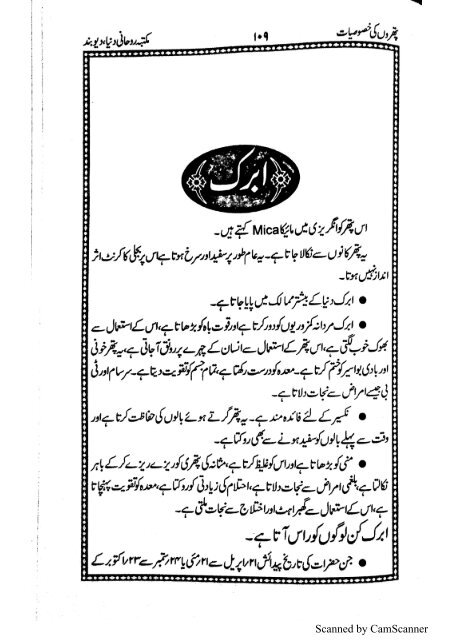 پتھروں کی خصوصیات ۱۰۹ مکتبہ روحانی دنیا، دیوبند
ابرک
اس پتھر کو انگریزی میں مائیکا Mica کہتے ہیں۔
یہ پتھر کانوں سے نکالا جاتا ہے۔ یہ عام طور پر سفید اور سرخ ہوتا ہے اس پر بجلی کا کرنٹ اثر
انداز نہیں ہوتا۔
● ابرک دنیا کے بیشتر ممالک میں پایا جاتا ہے۔
● ابرک مردانہ کمزوریوں کو دور کرتا ہے اور قوت باہ کو بڑھاتا ہے، اس کے استعمال سے
بھوک خوب لگتی ہے، اس پتھر کے استعمال سے انسان کے چہرے پر رونق آ جاتی ہے، یہ پتھر خونی
اور بادی بواسیر کو ختم کرتا ہے۔ معدہ کو درست رکھتا ہے، تمام جسم کو تقویت دیتا ہے۔ سرسام اور ٹی
بی جیسے امراض سے نجات دلاتا ہے۔
● نکسیر کے لئے فائدہ مند ہے۔ یہ پتھر گرتے ہوئے بالوں کی حفاظت کرتا ہے اور
وقت سے پہلے بالوں کو سفید ہونے سے بھی روکتا ہے۔
● منی کو بڑھاتا ہے اور اس کو غلیظ کرتا ہے، مثانہ کی پتھری کو ریزے ریزے کر کے باہر
نکالتا ہے، بلغمی امراض سے نجات دلاتا ہے، احتلام کی زیادتی کو روکتا ہے، معدہ کو تقویت پہنچاتا
ہے، اس کے استعمال سے گھبراہٹ اور اختلاج سے نجات ملتی ہے۔
ابرک کن لوگوں کو راس آتا ہے۔
● جن حضرات کی تاریخ پیدائش ۲۱/اپریل سے ۲۱/مئی یا ۲۴/ستمبر سے ۲۳/اکتوبر کے
Scanned by CamScanner